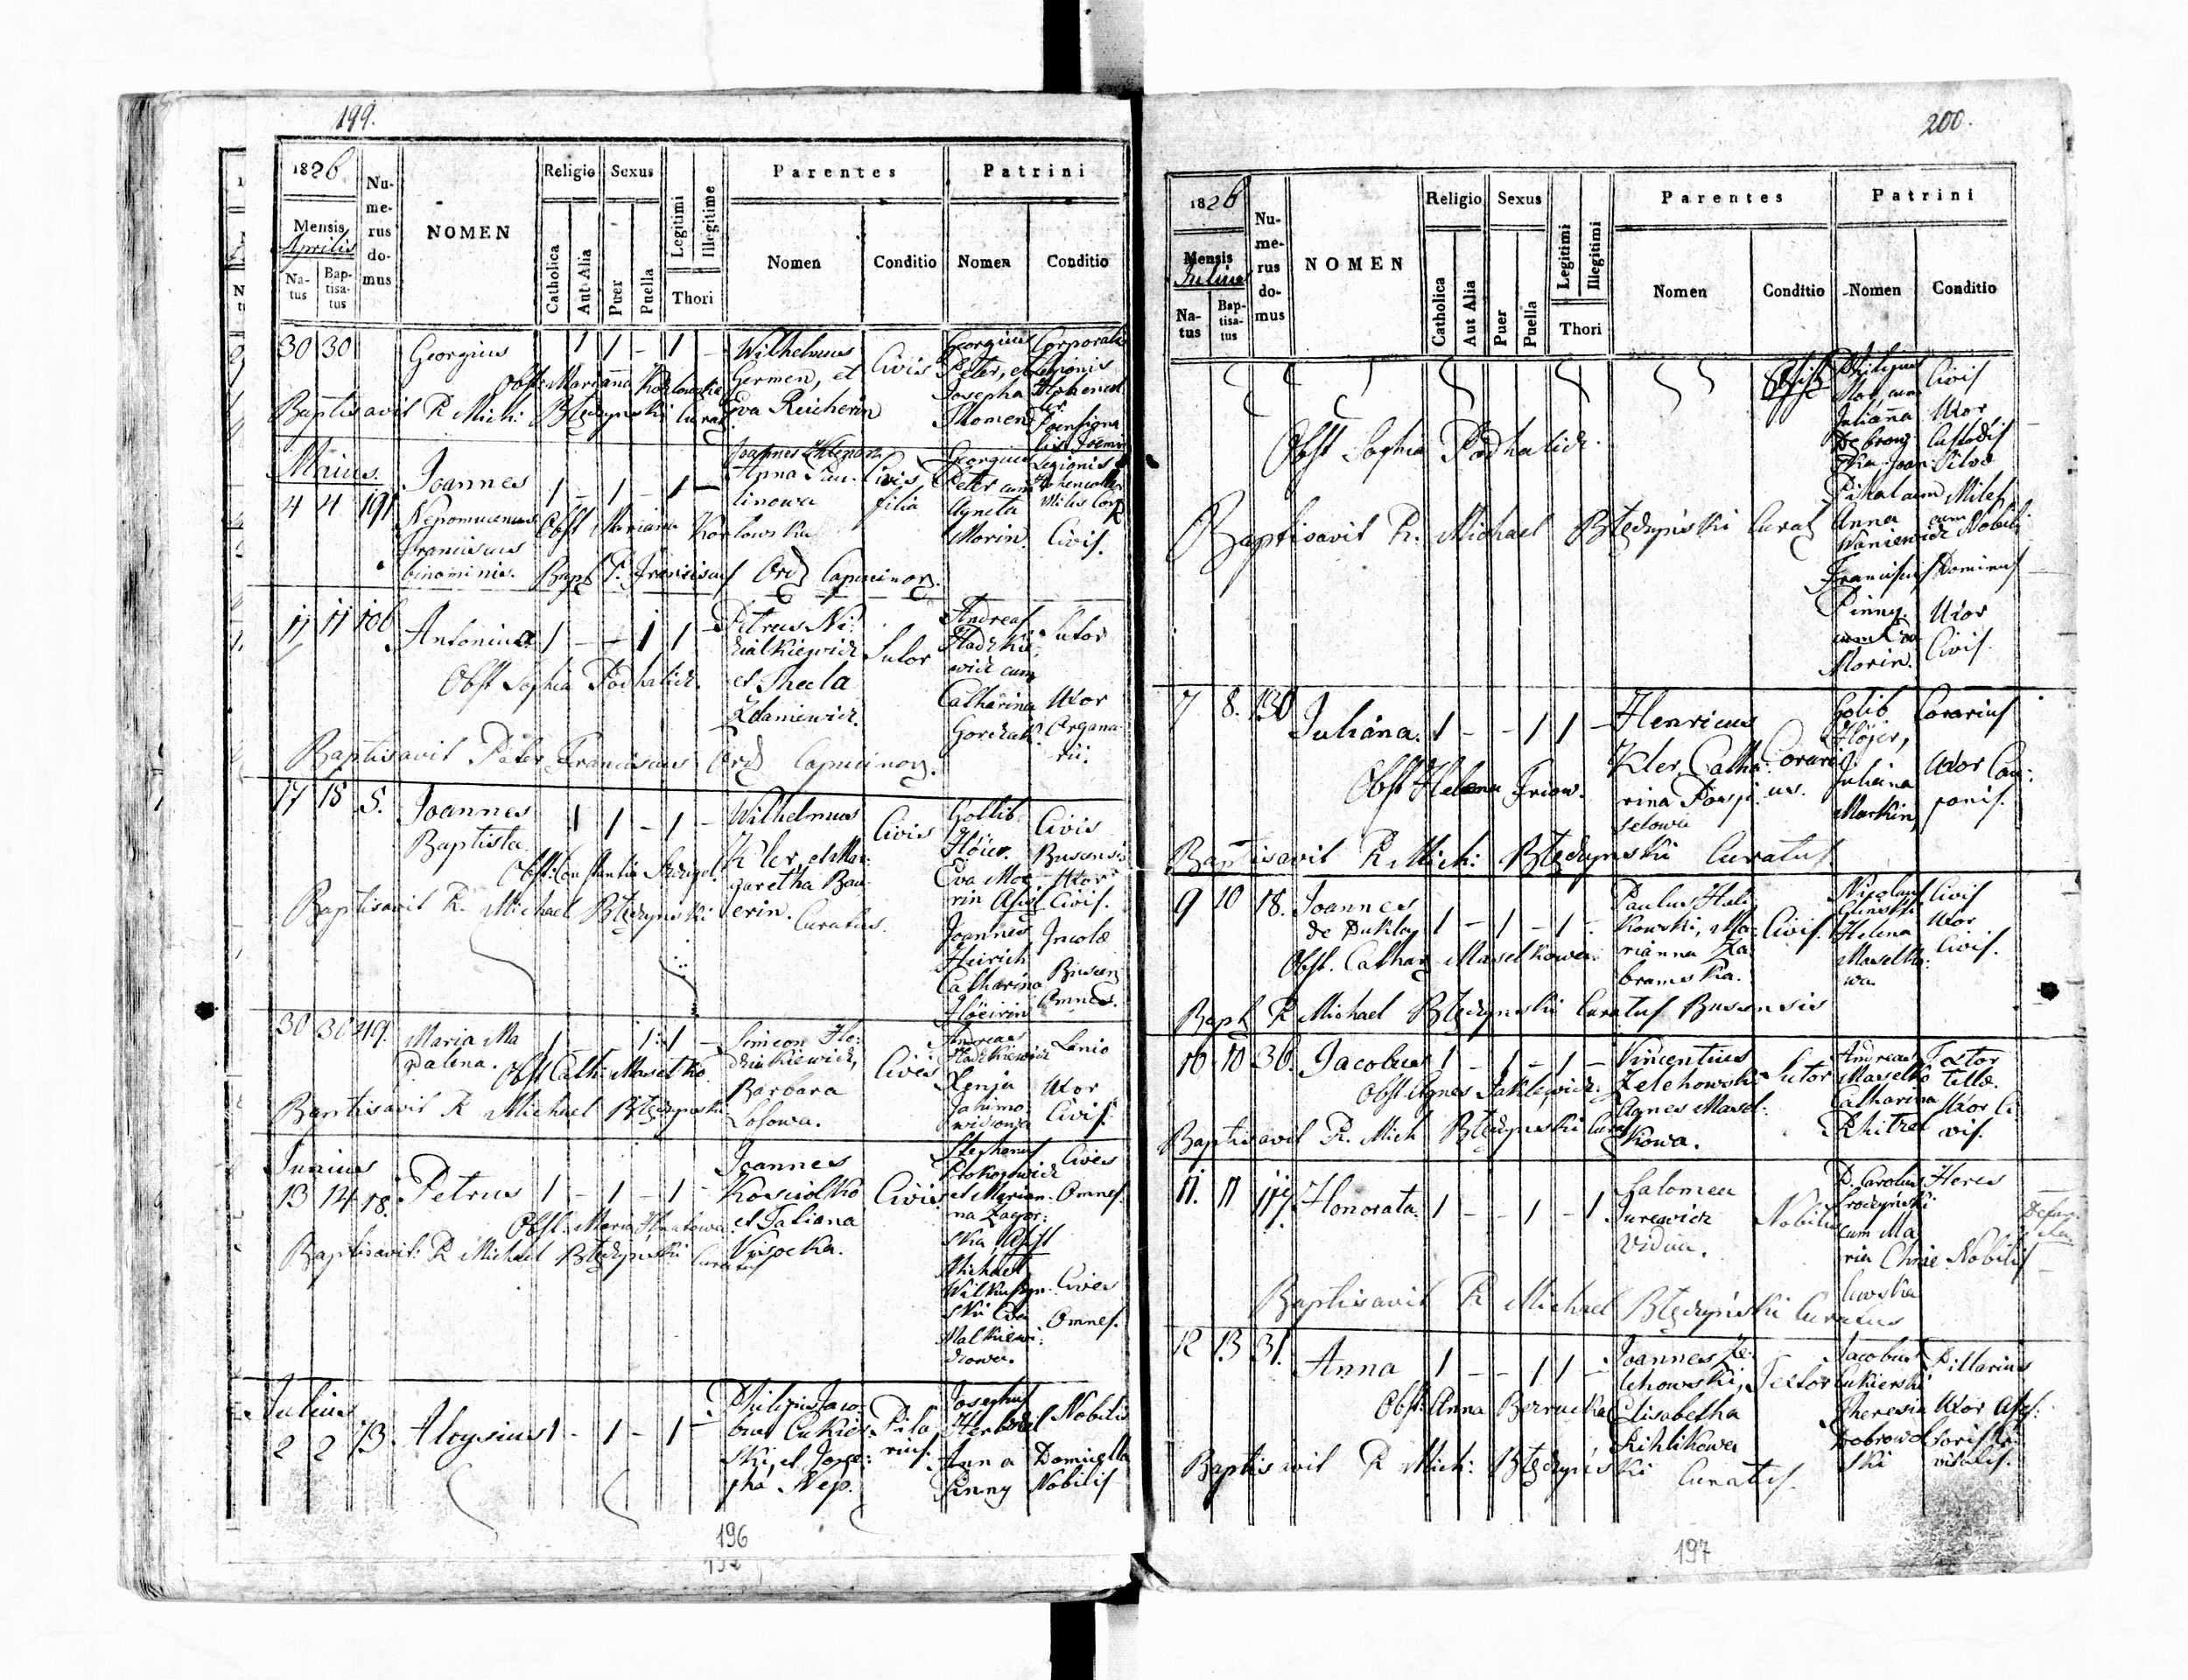 199.
1826
Numerus domus
NOMEN
Religio
Sexus
Legitimi
Illegitime
Parentes
Patrini
Mensis
Aprilis
Natus
Baptisatus
Catholica
Aut Alia
Puer
Puella
Thori
Nomen
Conditio
Nomen
Conditio
30 30 Georgius 1 1 - 1 - Wilhelmus
Germen, et
Eva Reicherin
Civis
Georgius
Peter, et
Josepha
Thomen
Corporalis
Legionis
Obst: Marianna Kozlowska
Baptisavit R. Mich: Błędzynski Curat
Maius.
4 4 191 Joannes
Nepomucenus
Franciscus
binominis.
1 - 1 - 1 -
Joannes
Anna Pau-
linowa
Civis
filia
Georgius
Peter cum
Agneta
Morin
Legionis
Civis.
Obst Marianna Kozlowska
Bapt P. Franciscus Ord Capucinor.
11 11 106 Antonina 1 - - 1 1 -
Petrus Ni-
dzialkiewicz
et Thecla
Zdaniewicz.
Sutor
Andreas
Hadzkie-
wicz cum
Catharina
Gorczak
Sutor
Uxor
Organa-
rii.
Obst Sophia Podhalicz.
Baptisavit Pater Franciscus Ord Capucinor.
17 18 5. Joannes
Baptista
1 1 - 1 -
Wilhelmus
Kler, et Mar-
garetha Bau-
erin.
Civis
Gottlib
Höier.
Eva Mo-
rin Assist
Joannes
Heirich
Catharina
Höierin
Civis
Busensis
Uxor
Civis.
Incolae
Busen
Omnes.
Obst: Constantia
Baptisavit R. Michael Błędzynski Curatus.
30 30 49. Maria Ma
dalena.
1 - 1 1 -
Simeon Ho-
dzinkiewicz,
Barbara
Losowa.
Civis
Andreas
Hadzkiewicz
Xenja
Jahimo-
wiczowa
Lanio
Uxor
Civis.
Obst Cath: Maselko.
Baptisavit R Michael Błędzynski
Junius
13 14 18. Petrus 1 - 1 - 1 -
Joannes
Kosciolko
et Taliana
Visocka.
Civis
Stephanus
Prokopowicz
et Marian-
na Zagor-
ska, Assist
Michael
ski Eva
Malkiewi-
czowa.
Cives
Omnes.
Cives
Omnes.
Obst: Maria Hnatowa
Baptisavit: R Michael Błędzynski Curatus
Julius
2 2 73. Aloysius 1 - 1 - 1 -
Philipus Jaco-
bus Cukier-
ski, et Jose-
pha Nep.
Pila
rius.
Josephus
Anna
Pinny
Nobilis
Domicella
Nobilis
196
200.
1826
Numerus domus
NOMEN
Religio
Sexus
Legitimi
Illegitimi
Parentes
Patrini
Mensis
Julius
Natus
Baptisatus
Catholica
Aut Alia
Puer
Puella
Thori
Nomen
Conditio
Nomen
Conditio
Assist
Philipus
Julianna
Anna
Waniewicz
Franciscus
Pinny.
cum Eva
Morin.
Civis
Uxor
Custodis
Silvae
Miles
cum Nobili
Dominus
Uxor
Civis.
Obst Sophia Podhalicz.
Baptisavit R. Michael Błędzynski Curat
7 8. 130 Juliana. 1 - - 1 1 -
Henricus
Kler, Catha-
rina Pospi-
selowa
Corari-
us.
Golib
Höjer,
Juliana
Markin
Corarius
Uxor Cau-
ponis.
Obst Helena Friow.
Baptisavit R. Mich: Błędzynski Curatus
9 10 18. Joannes
de Dukla
1 - 1 - 1 -
Paulus Hali-
kowski, Ma-
rianna Za-
bramska.
Civis.
Nicolaus
Helena
Maselko-
wa.
Civis
Uxor
Civis.
Obst. Cathar Maselkowa.
Bapt. R Michael Błędzynski Curatus Busensis
10 10 36. Jacobus 1 - 1 - 1 -
Vincentius
Zelehowski
Agnes Masel-
kowa.
Sutor
Andreas
Maselko
Catharina
Textor
Tellae.
Uxor Ci-
vis.
Obst Agnes Saklewicz.
Baptisavit R. Mich Błędzynski Curat
11. 11 117. Honorata. 1 - - 1 - 1
Salomea
Jurewicz
Vidua.
Nobilis
D. Carolus
cum Ma-
ria
Heres
Nobilis
Baptisavit R Michael Błędzynski Curatus
12 13 31. Anna 1 - - 1 1 -
Joannes Ze-
lehowski,
Elisabetha
Rihlikowa
Textor
Jacobus
Cukierski
Theresia
Dobrowol
ski
Pillarius
Uxor
Obst: Anna Bernacka
Baptisavit R Mich: Błędzynski Curatus.
197